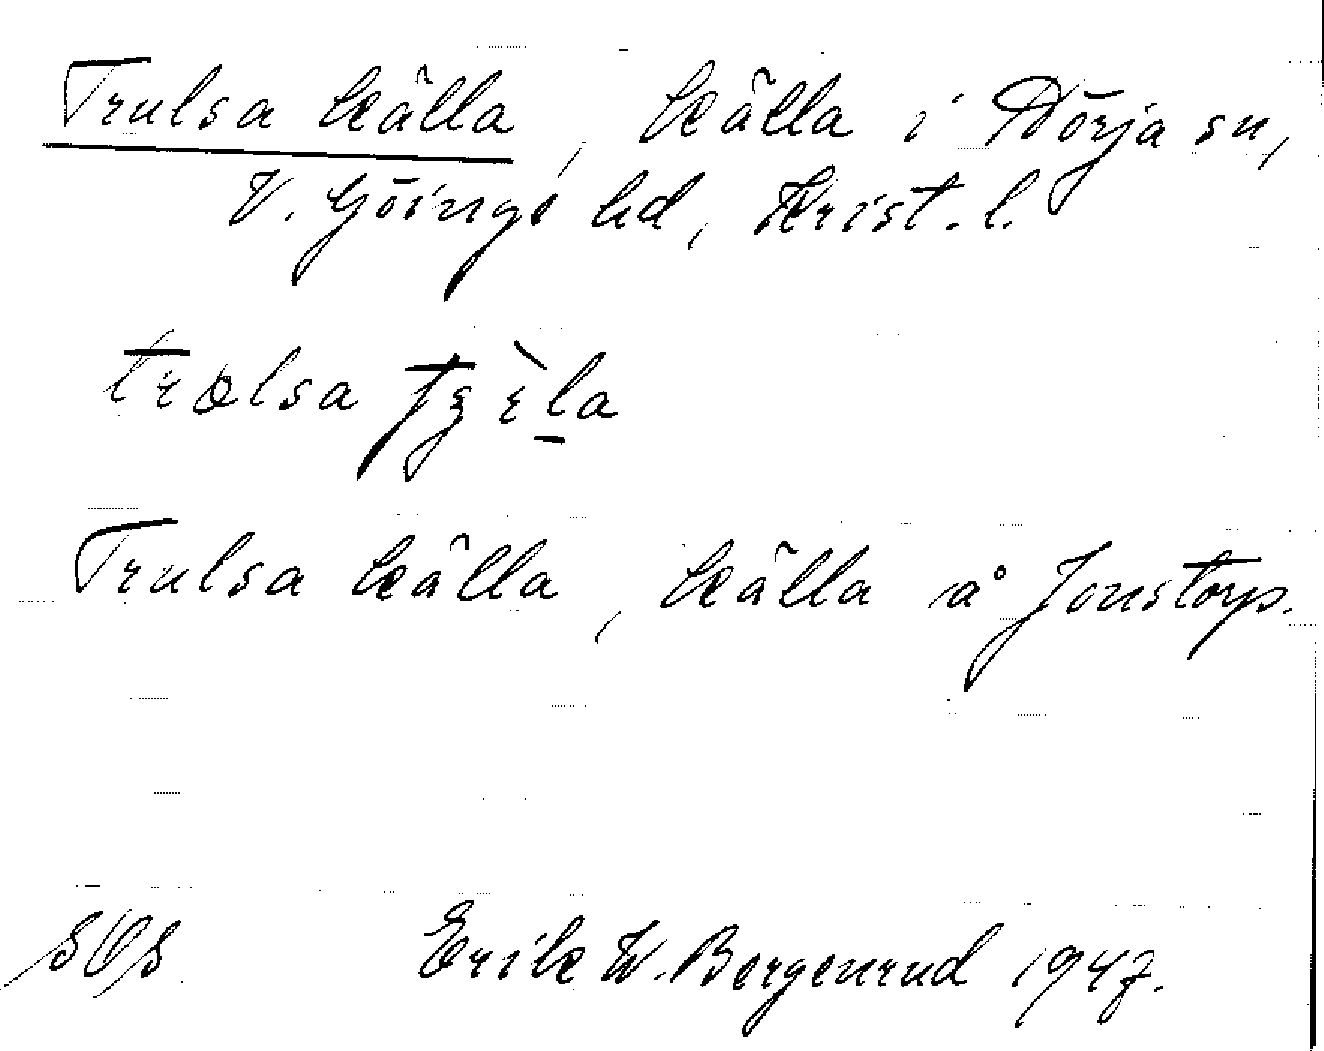 Trulsa källa, källa i Nörja sn,
V. Göinge hd, Krist. l.
Trulsa källa, källa å Jonstorp.
Erik W. Bergenrud 1947.